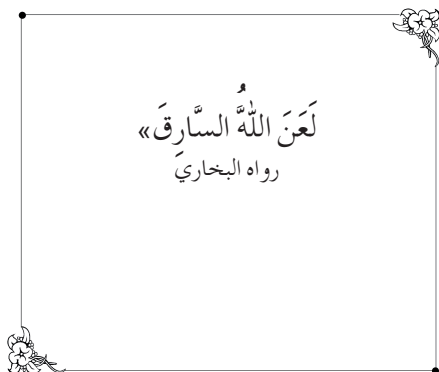 لَعَنَ اللهُ السَّارِقَ»
رواه البخاري